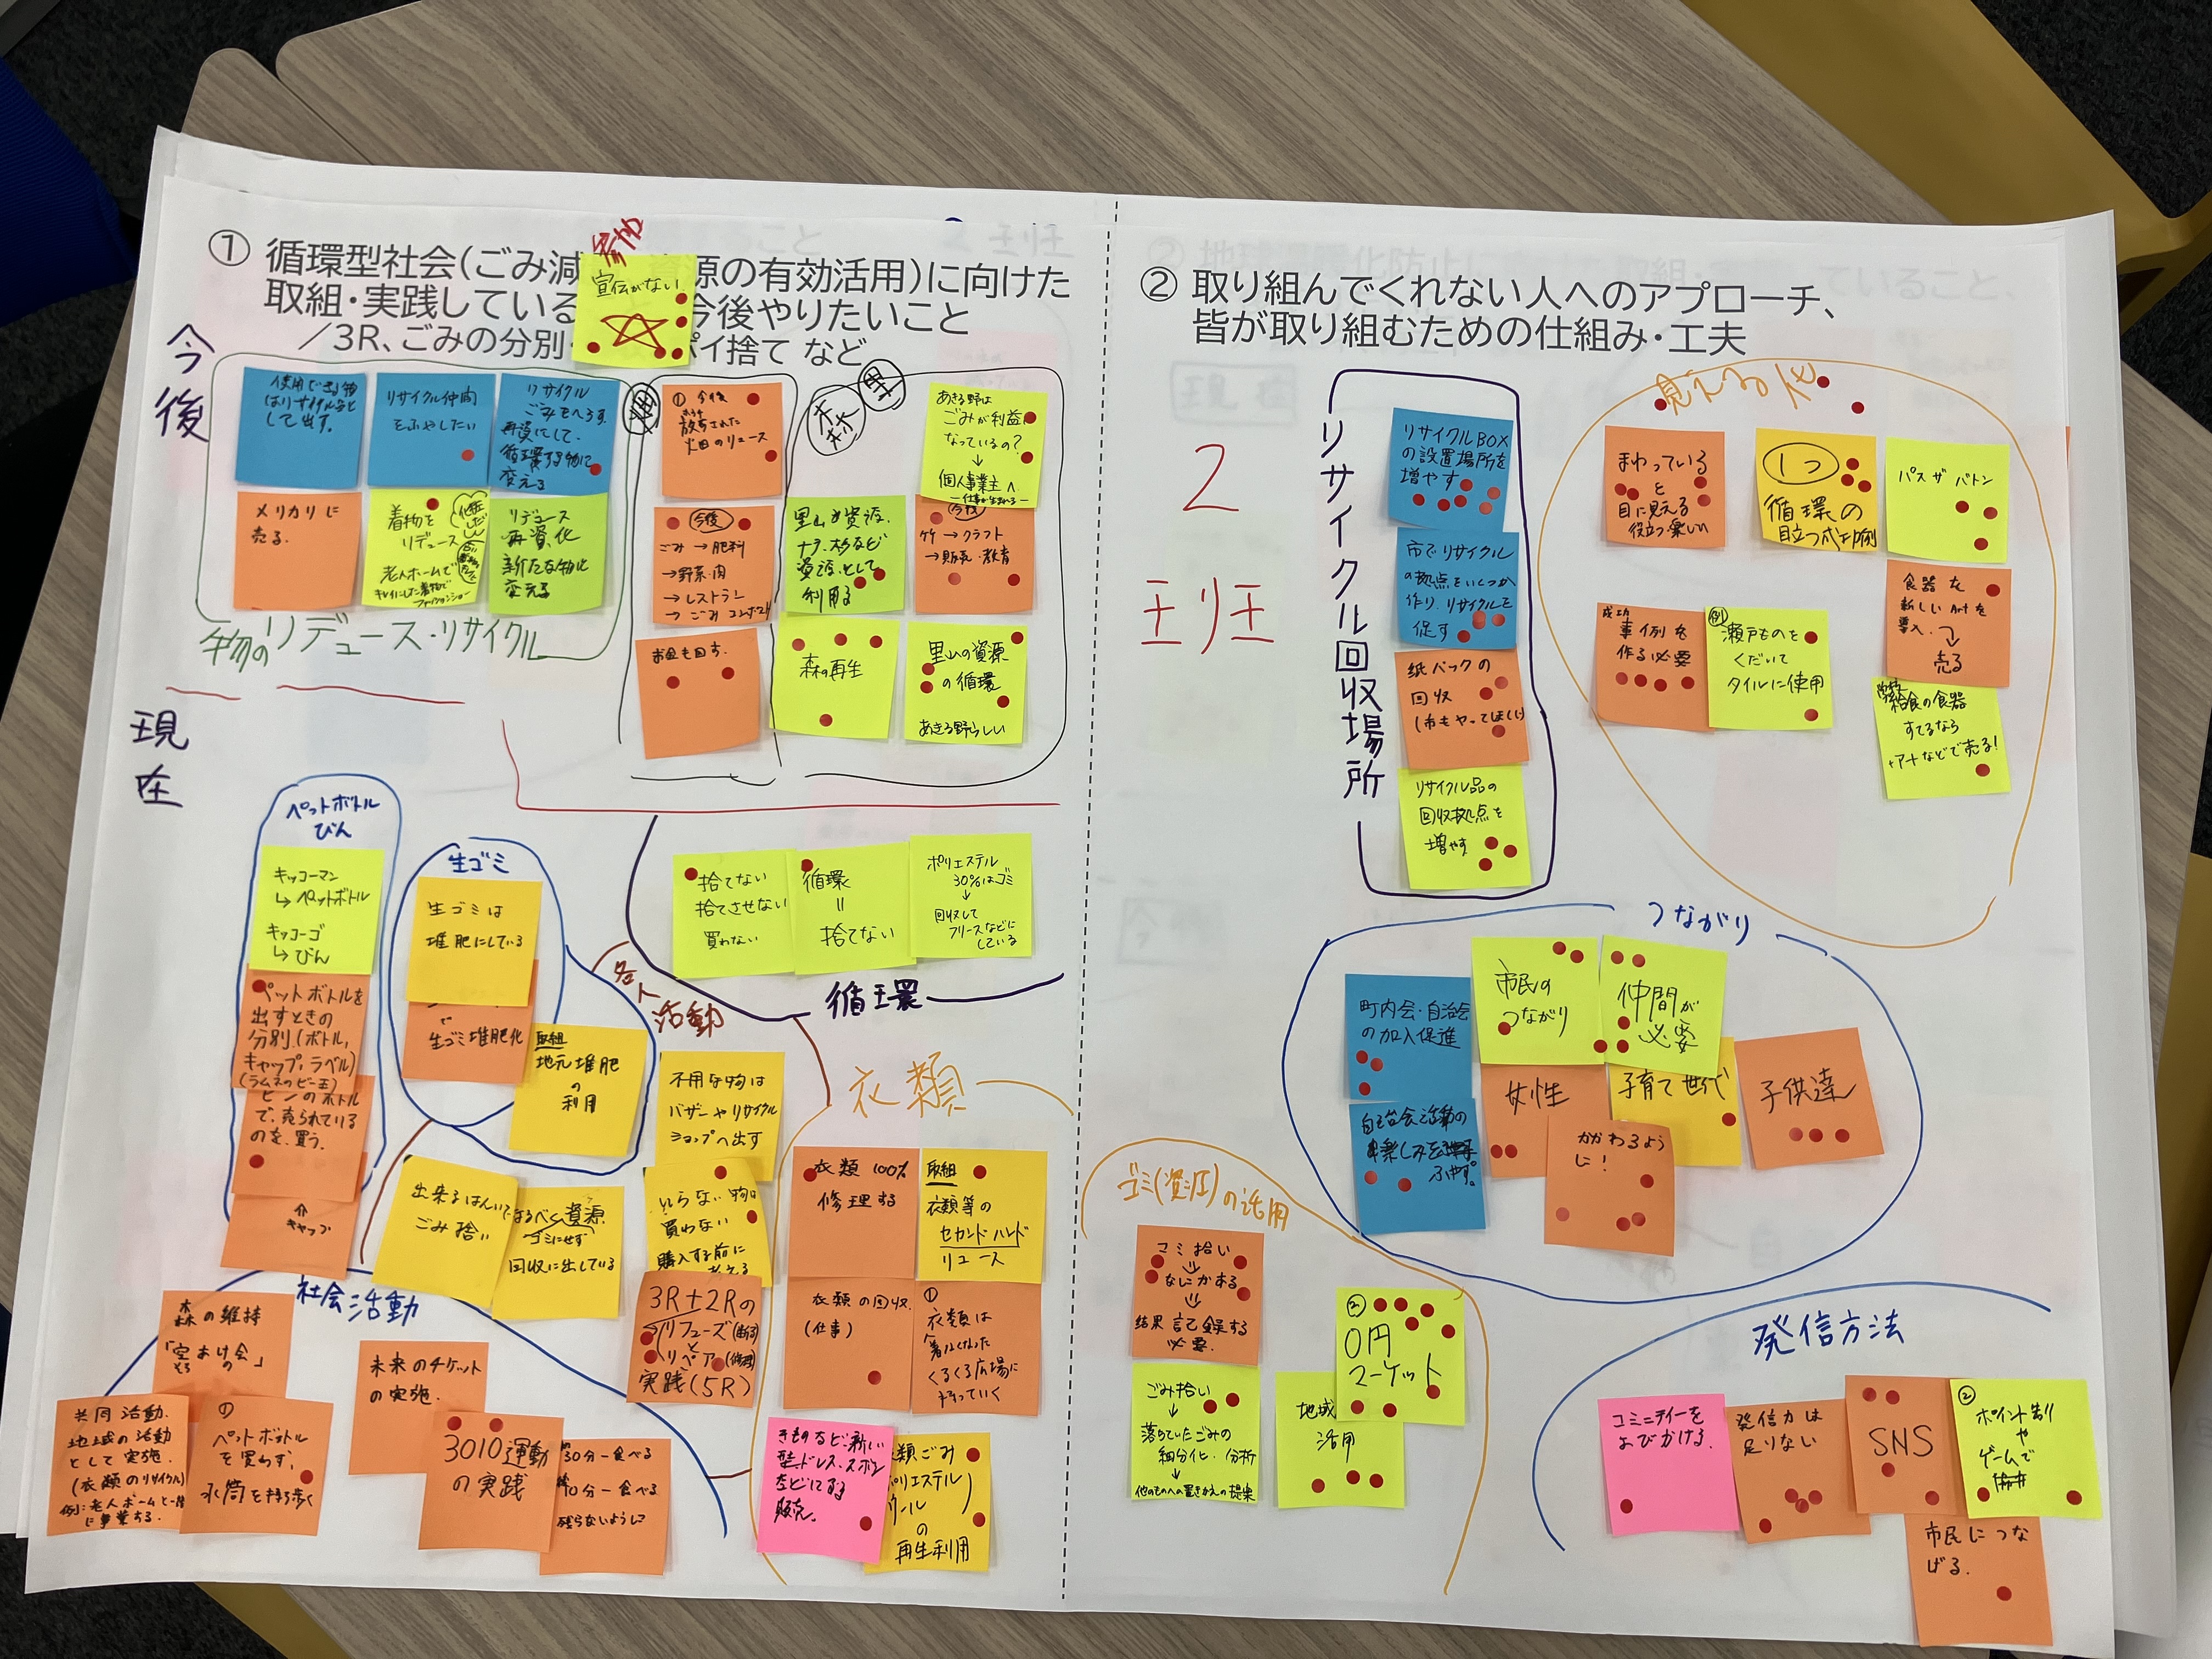 ① 循環型社会(ごみ減 資源の有効活用)に向けた
取組・実践している 今後やりたいこと
/3R、ごみの分別・ ポイ捨て など
参加
宣伝がない
今後
使用できる物
はリサイクル品と
して出す。
リサイクル仲間
をふやしたい
リサイクル
ごみをへらす。
再資にして、
循環する物に
変える
メリカリに
売る。
着物を
リデュース
老人ホームで
キレイにした着物で
ファッションショー
リデュース
再資化
新たな物に
変える
物のリデュース・リサイクル
畑
① 今後
放棄された
畑のリユース
今後
ごみ → 肥料
→野菜・肉
→レストラン
→ ごみ コンポスト
お皿も回す。
森林
里
あきる野は
ごみが利益に
なっているの?
↓
個人事業主へ
里山の資源、
ナラ・杉など
資源として
利用る
今後
竹 → クラフト
→販売・教育
森の再生
里山の資源
の循環
あきる野らしい
現在
ペットボトル
びん
キッコーマン
↳ ペットボトル
キッコーゴ
↳ びん
ペットボトルを
出すときの
分別(ボトル、
キャップ、ラベル)
(ラムネのビー玉)
ビンのボトル
で、売られている
のを、買う。
キャップ
生ゴミ
生ゴミは
堆肥にしている
で
生ゴミ堆肥化
取組
地元堆肥
の
利用
各人
活動
捨てない
捨てさせない
買わない
循環
॥
捨てない
ポリエステル
30%はゴミ
↓
回収して
フリースなどに
している
循環
不用な物は
バザーやリサイクル
ショップへ出す
出来るはんいで
ごみ捨い
なるべく資源
ゴミにせず
回収に出している
いらない物は
買わない
購入する前に
考える
3R+2Rの
リフューズ(断る)
と
リペア(修理)
実践(5R)
衣類
衣類100%
修理する
取組
衣類等の
セカンドハンド
リユース
衣類の回収
(仕事)
①
衣類は
着れなくなった
くるくる広場に
持っていく
きものなど新しい
型、ドレス、ズボン
などにする
販売。
衣類ごみ
ポリエステル
ウール
の
再生利用
社会活動
森の維持
共同活動、
地域の活動
として実施。
(衣類のリサイクル)
例:老人ホームと一緒
に事業する。
の
ペットボトル
を買わず、
水筒を持ち歩く
未来のチケット
の実施。
3010運動
の実践
30分一食べる
10分一食べる
残らないように
② 取り組んでくれない人へのアプローチ、
皆が取り組むための仕組み・工夫
2
班
リサイクル回収場所
リサイクルBOX
の設置場所を
増やす
市でリサイクル
の拠点をいくつか
作り、リサイクルを
促す
紙パックの
回収
(市もやってほしい)
リサイクル品の
回収拠点を
増やす
見える化
まわっている
と
目に見える
役立つ・楽しい
1つ
循環の
目立つ成功例
パス ザ バトン
成功
事例を
作る必要
例
瀬戸ものを
くだいて
タイルに使用
食器を
新しいArtを
導入、
売る
給食の食器
すてるなら
アートなどで売る!
つながり
町内会・自治会
の加入促進
市民の
つながり
仲間が
必要
自治会活動の
楽しみを
ふやす。
女性
子育て世代
子供達
かかわるよう
に!
ゴミ(資源)の活用
ゴミ拾い
なにがある
結果 記録する
必要。
ごみ拾い
↓
落ちていたごみの
細分化・分析
↓
他のものへの置きかえの提案
②
0円
マーケット
地域
活用
発信方法
コミニティーを
よびかける。
発信力は
足りない
SNS
②
ポイント制
や
ゲームで
市民につな
げる。